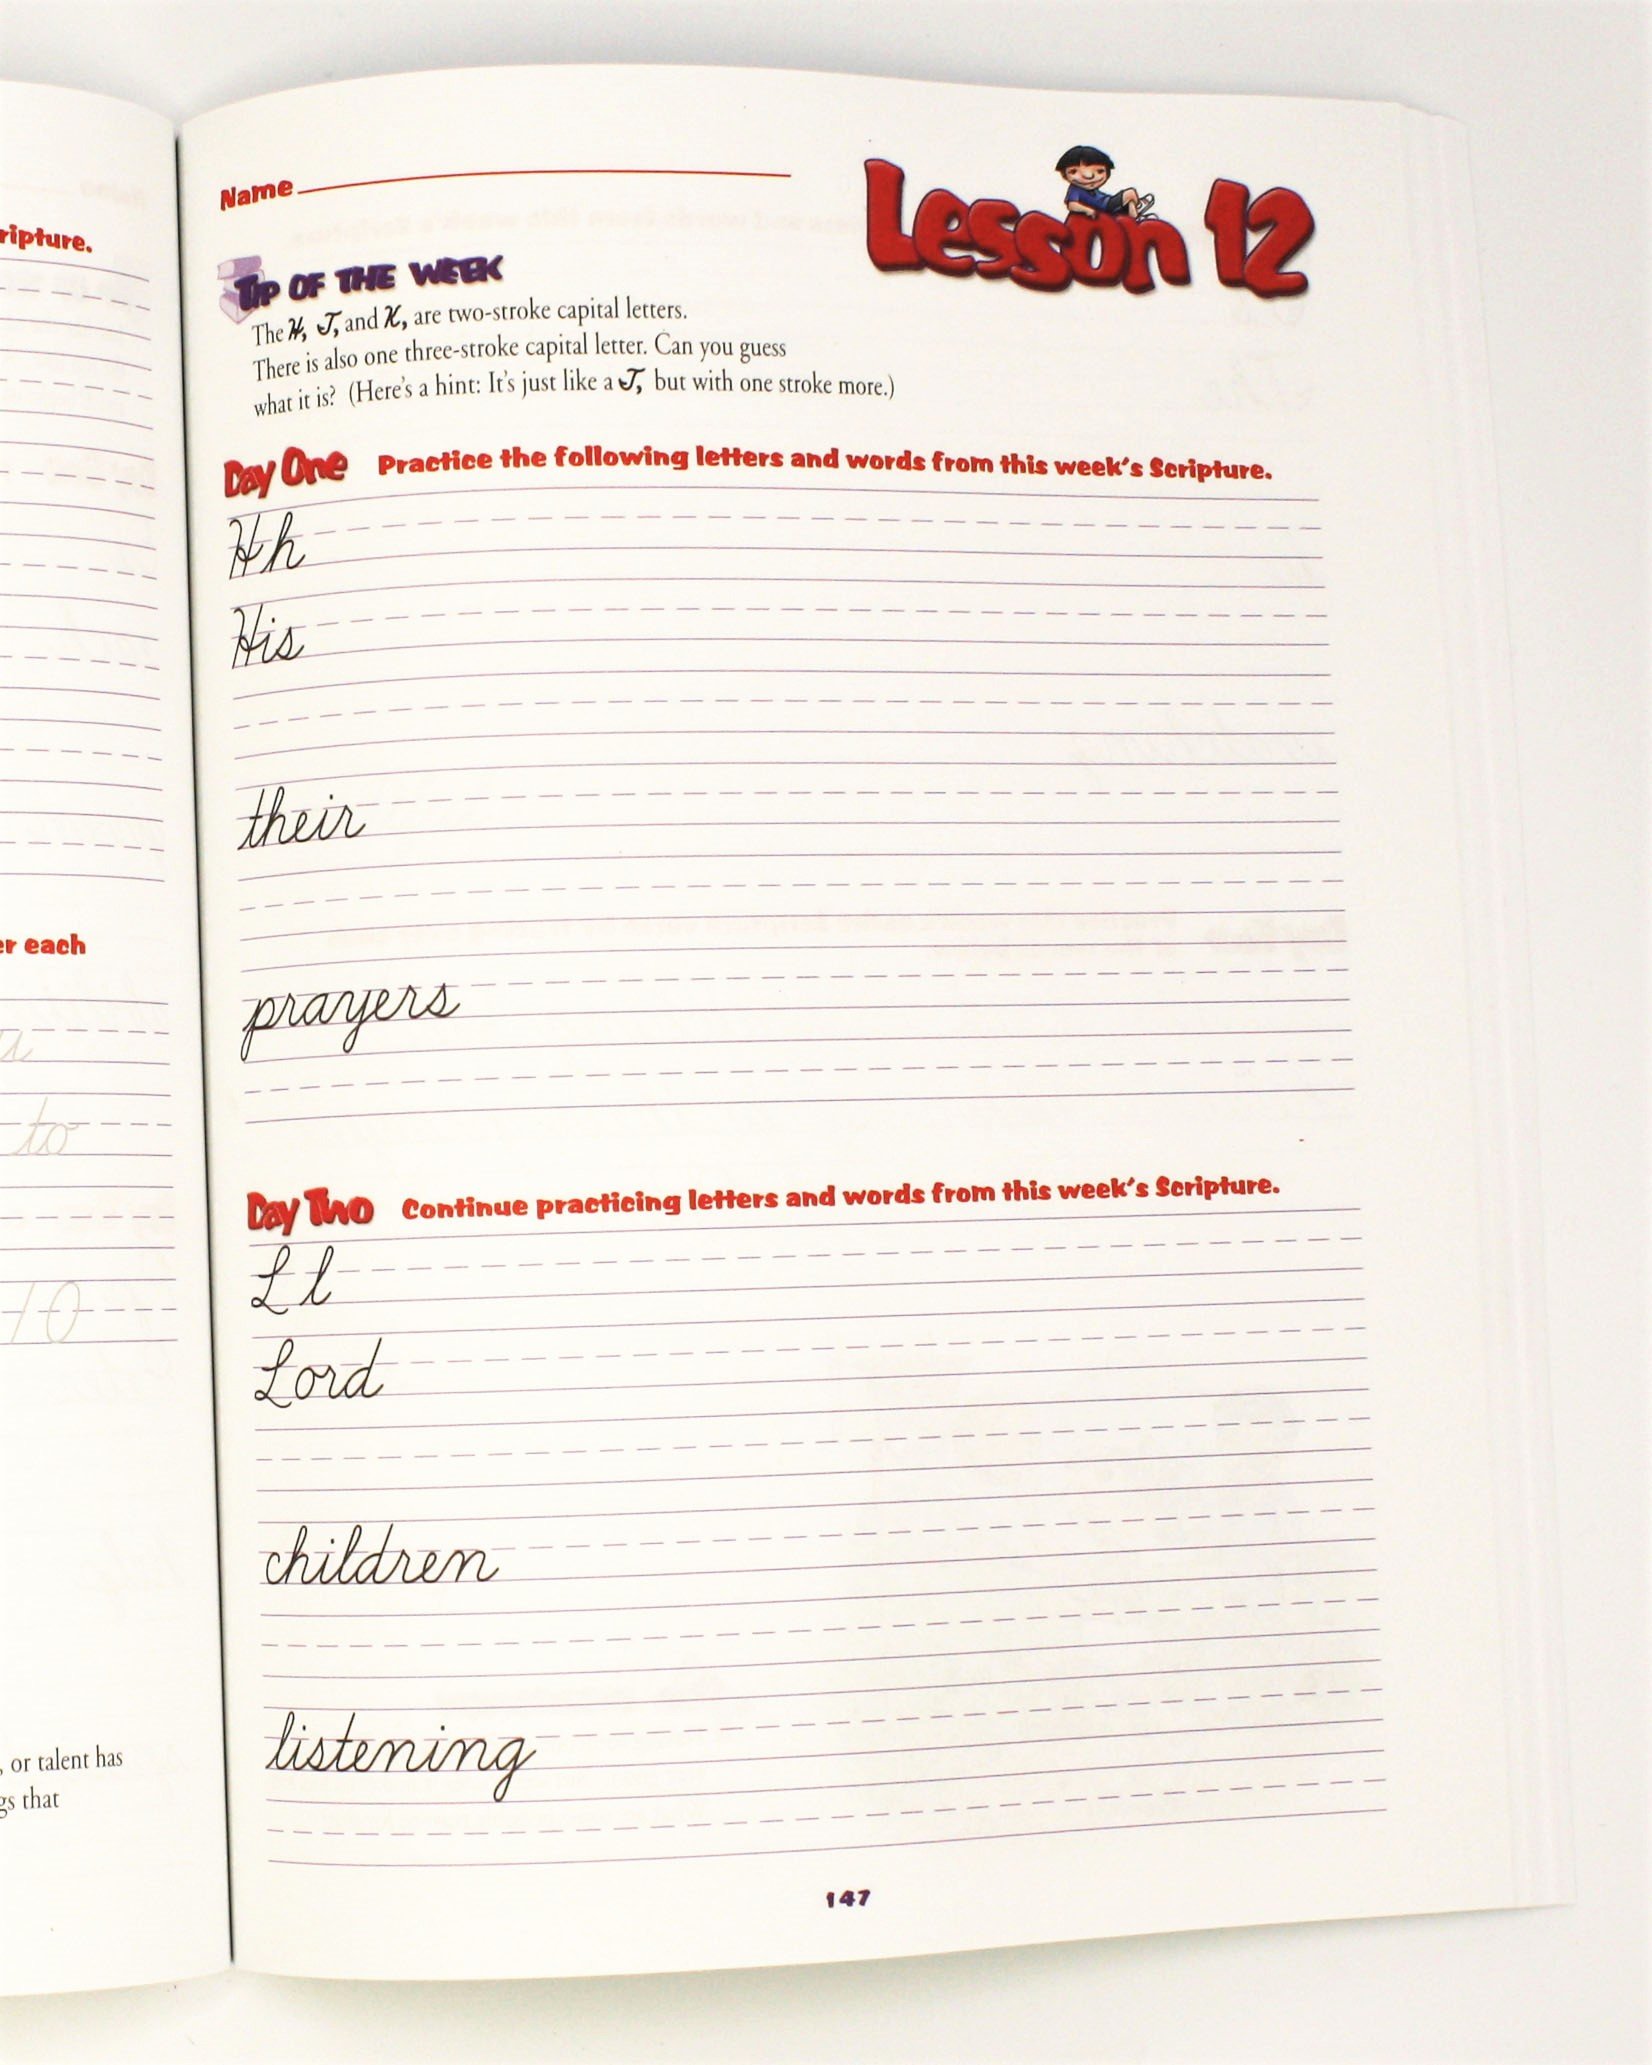 ripture.
er each
to
10
, or talent has
gs that
Name
Lesson 12
Tip of the Week
The H, T, and K, are two-stroke capital letters.
There is also one three-stroke capital letter. Can you guess
what it is? (Here's a hint: It's just like a T, but with one stroke more.)
Day One Practice the following letters and words from this week's Scripture.
H h
His
their
prayers
Day Two Continue practicing letters and words from this week's Scripture.
L l
Lord
children
listening
147